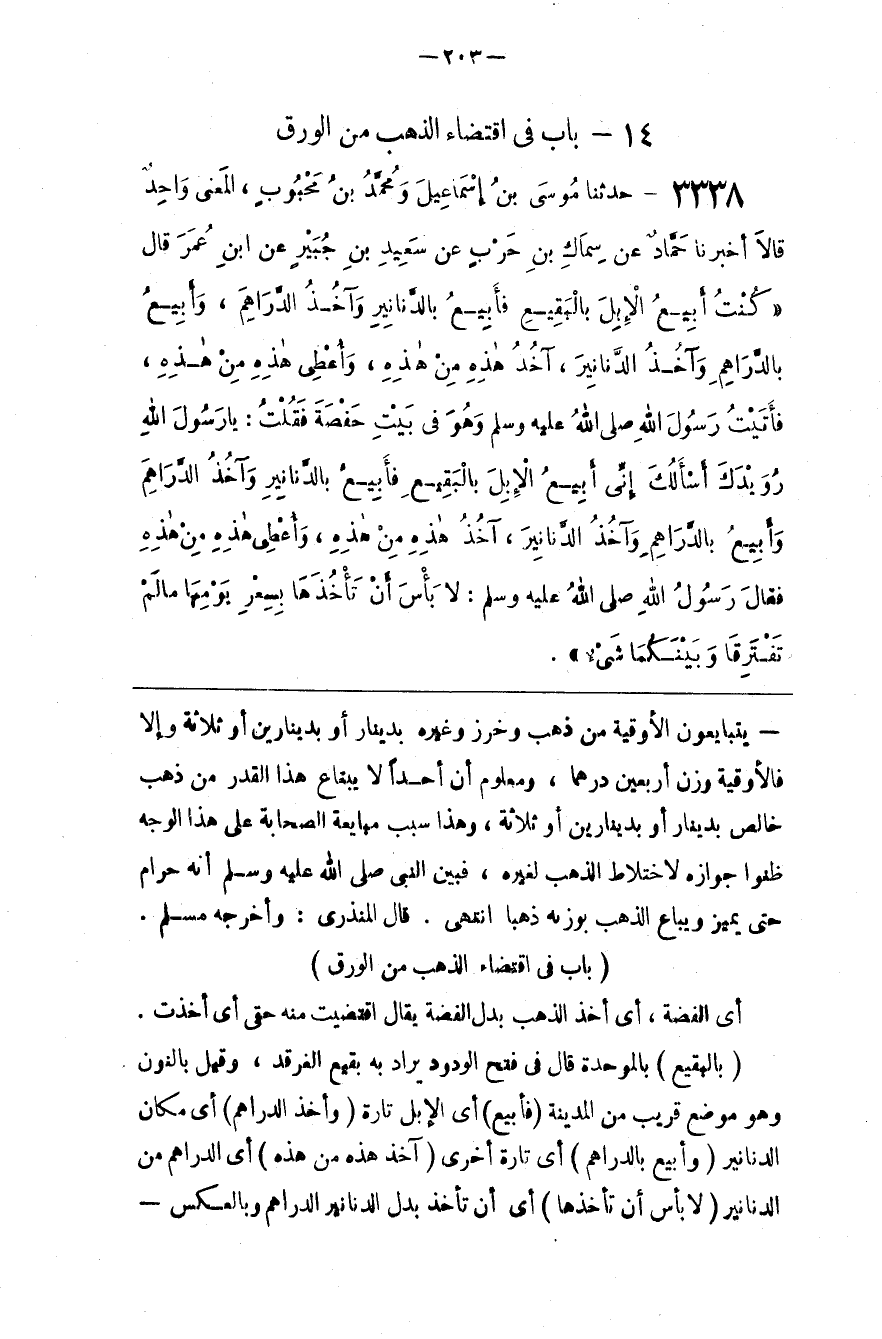 — ٢٠٣ —
١٤ — باب فى اقتضاء الذهب من الورق
٣٣٣٨ — حدثنا مُوسَى بنُ إِسْمَاعِيلَ وَمُحمَّدُ بنُ مَحْبُوبٍ ، المَعنى وَاحِدٌ
قالاَ أخبرنا حَمَّادٌ عن سِمَاكِ بنِ حَرْبٍ عن سَعِيدِ بنِ جُبَيْرٍ عن ابنِ عُمَرَ قال
« كُنْتُ أَبِيعُ الْإِبِلَ بالْبَقِيعِ فأَبِيعُ بالدَّنانِيرِ وَآخُذُ الدَّرَاهِمَ ، وَأَبِيعُ
بالدَّرَاهِمِ وَآخُذُ الدَّنانِيرَ ، آخُذُ هٰذِهِ مِنْ هٰذِهِ ، وَأُعْطِى هٰذِهِ مِنْ هٰذِهِ ،
فأَتَيْتُ رَسُولَ اللهِ صلى اللهُ عليه وسلم وَهُوَ فى بَيْتِ حَفْصَةَ فَقُلْتُ : يارَسُولَ اللهِ
رُوَيْدَكَ أَسْأَلُكَ إِنِّى أَبِيعُ الْإِبِلَ بالْبَقِيعِ فأَبِيعُ بالدَّنانِيرِ وَآخُذُ الدَّرَاهِمَ
وَأَبِيعُ بالدَّرَاهِمِ وَآخُذُ الدَّنانِيرَ ، آخُذُ هٰذِهِ مِنْ هٰذِهِ ، وَأُعْطِى هٰذِهِ مِنْ هٰذِهِ
فقالَ رَسُولُ اللهِ صلى اللهُ عليه وسلم : لا بَأْسَ أَنْ تَأْخُذَهَا بِسِعْرِ يَوْمِهَا مالَمْ
تَفْتَرِقَا وَبَيْنَكُمَا شَىْءٌ » .
— يتبايعون الأوقية من ذهب وخرز وغيره بدينار أو بدينارين أو ثلاثة وإلا
فالأوقية وزن أربعين درهما ، ومعلوم أن أحداً لا يبتاع هذا القدر من ذهب
خالص بدينار أو بدينارين أو ثلاثة ، وهذا سبب مبايعة الصحابة على هذا الوجه
ظنوا جوازه لاختلاط الذهب لغيره ، فبين النبى صلى الله عليه وسلم أنه حرام
حتى يميز ويباع الذهب بوزنه ذهبا انتهى . قال المنذرى : وأخرجه مسلم .
( باب فى اقتضاء الذهب من الورق )
أى الفضة ، أى أخذ الذهب بدل الفضة يقال اقتضيت منه حتى أى أخذت .
( بالبقيع ) بالموحدة قال فى فتح الودود يراد به بقيع الغرقد ، وقيل بالنون
وهو موضع قريب من المدينة (فأبيع) أى الإبل تارة ( وأخذ الدراهم) أى مكان
الدنانير ( وأبيع بالدراهم ) أى تارة أخرى ( آخذ هذه من هذه ) أى الدراهم من
الدنانير ( لا بأس أن تأخذها ) أى أن تأخذ بدل الدنانير الدراهم وبالعكس —